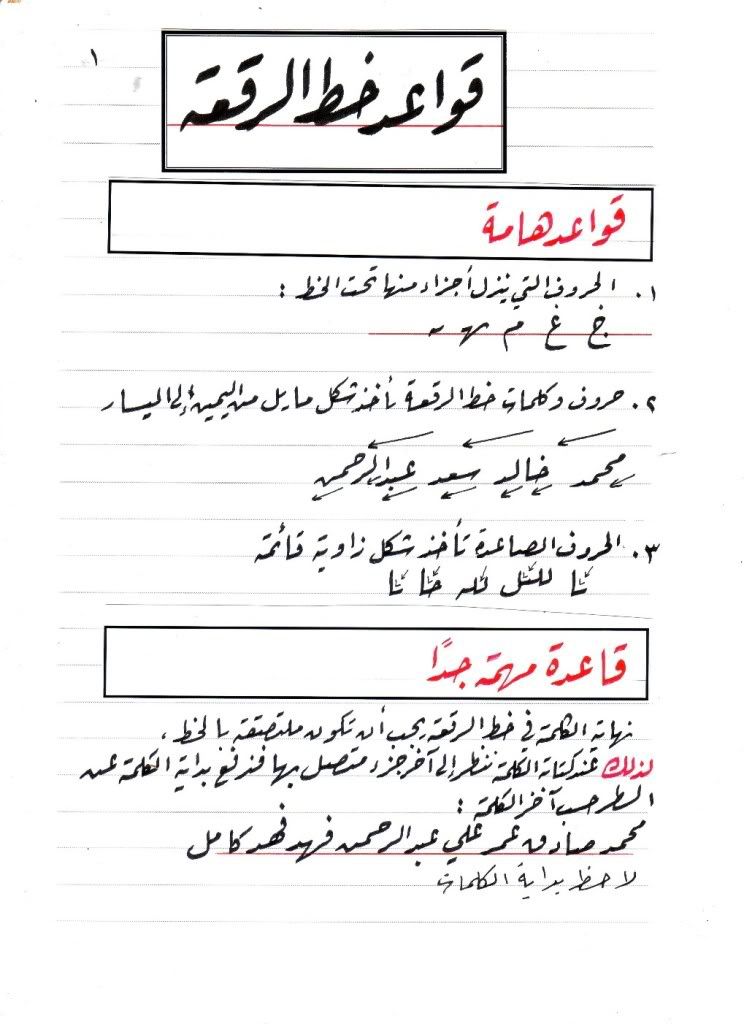 ١
قواعد خط الرقعة
قواعد هامة
١. الحروف التي ينزل أجزاء منها تحت الخط :
خ غ م ـهـ ـه
٢. حروف وكلمات خط الرقعة تأخذ شكل مايل من اليمين إلى اليسار
محمد خالد سعد عبدالرحمن
٣. الحروف الصاعدة تأخذ شكل زاوية قائمة
قاعدة مهمة جدًا
نهاية الكلمة في خط الرقعة يجب أن تكون ملتصقة بالخط ،
لذلك عند كتابة الكلمة ننظر إلى آخر جزء متصل بها فنرفع بداية الكلمة عن
السطر حسب آخر الكلمة :
محمد صادق عمر علي عبدالرحمن فهد فهد كامل
لاحظ بداية الكلمات